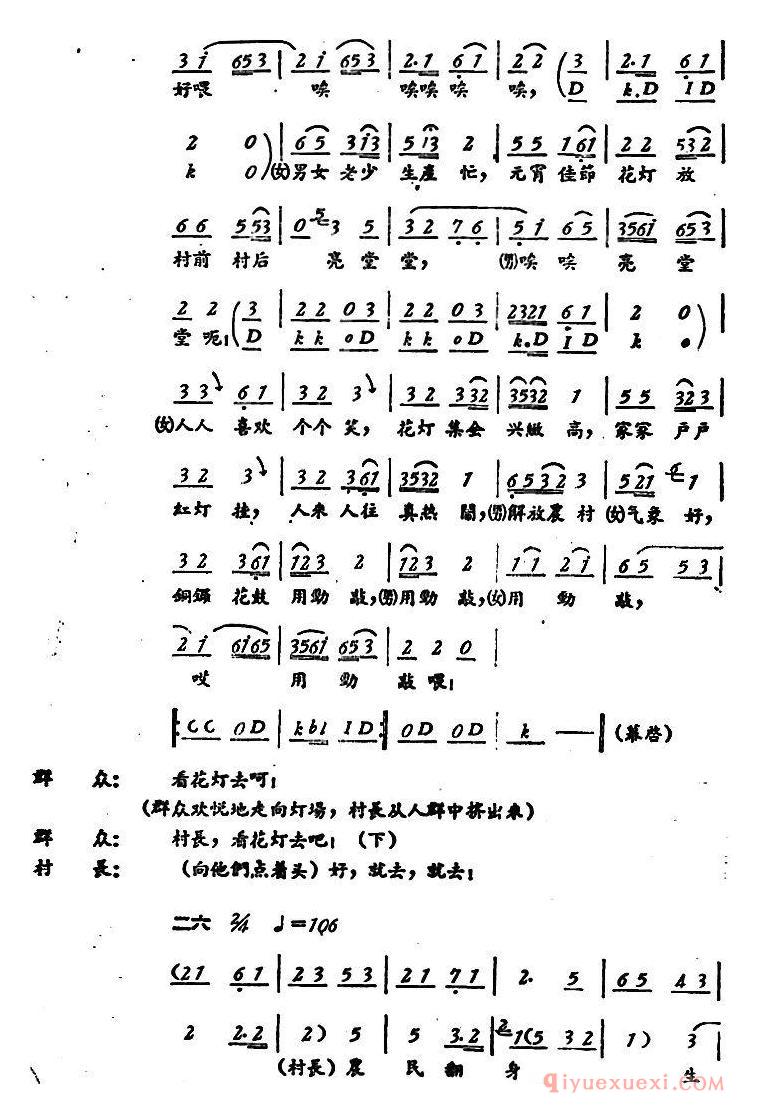 3 i 653 | 2 i 653 | 2·1 61 | 2 2 (3 | 2·1 61 |
好喂 唉 唉唉唉唉 唉， D k.D I D
2 0) | 65 3 i3 | 5 i3 2 | 55 161 | 22 532 |
k 0) (女)男女 老少 生產 忙，元宵 佳節 花灯 放
66 553 | 0 5 3 5 | 32 76 | 5 i 65 | 3561 653 |
村前 村后 亮堂 堂， (男)唉 唉 亮 堂
2 2 (3 | 22 03 | 22 03 | 2321 61 | 2 0) |
堂 呃！(D k k o D k k o D k.D I D k
33 61 | 32 3 | 32 332 | 3532 1 | 55 323 |
(女)人人 喜欢 个个 笑，花灯 集会 兴緻 高，家家 戶戶
32 3 | 32 361 | 3532 1 | 6532 3 | 521 6 1 |
紅灯 挂，人来 人往 真热 鬧，(男)解放農 村 (女)气象 好，
32 361 | 123 2 | 123 2 | i i 2 i | 65 53 |
銅鑼 花鼓 用勁 敲，(男)用勁 敲，(女)用 勁 敲，
2 i 6i65 | 3561 653 | 2 2 0 |
哎 用 勁 敲 喂！
‖: CC OD | k bl I D :‖ OD OD | k — ‖ (幕启)
群 众： 看花灯去呵！
(群众欢悦地走向灯場，村長从人群中挤出来)
群 众： 村長，看花灯去吧！(下)
村 長： (向他們点着头) 好，就去，就去！
二六 2/4 ♩=106
(21 61 | 23 53 | 21 71 | 2· 5 | 65 43 |
2 2·2 | 2) 5 | 5 3·2 | 2 1(5 32 | 1) 3 |
(村長) 農 民 翻 身 生
qiyuexuexi.com